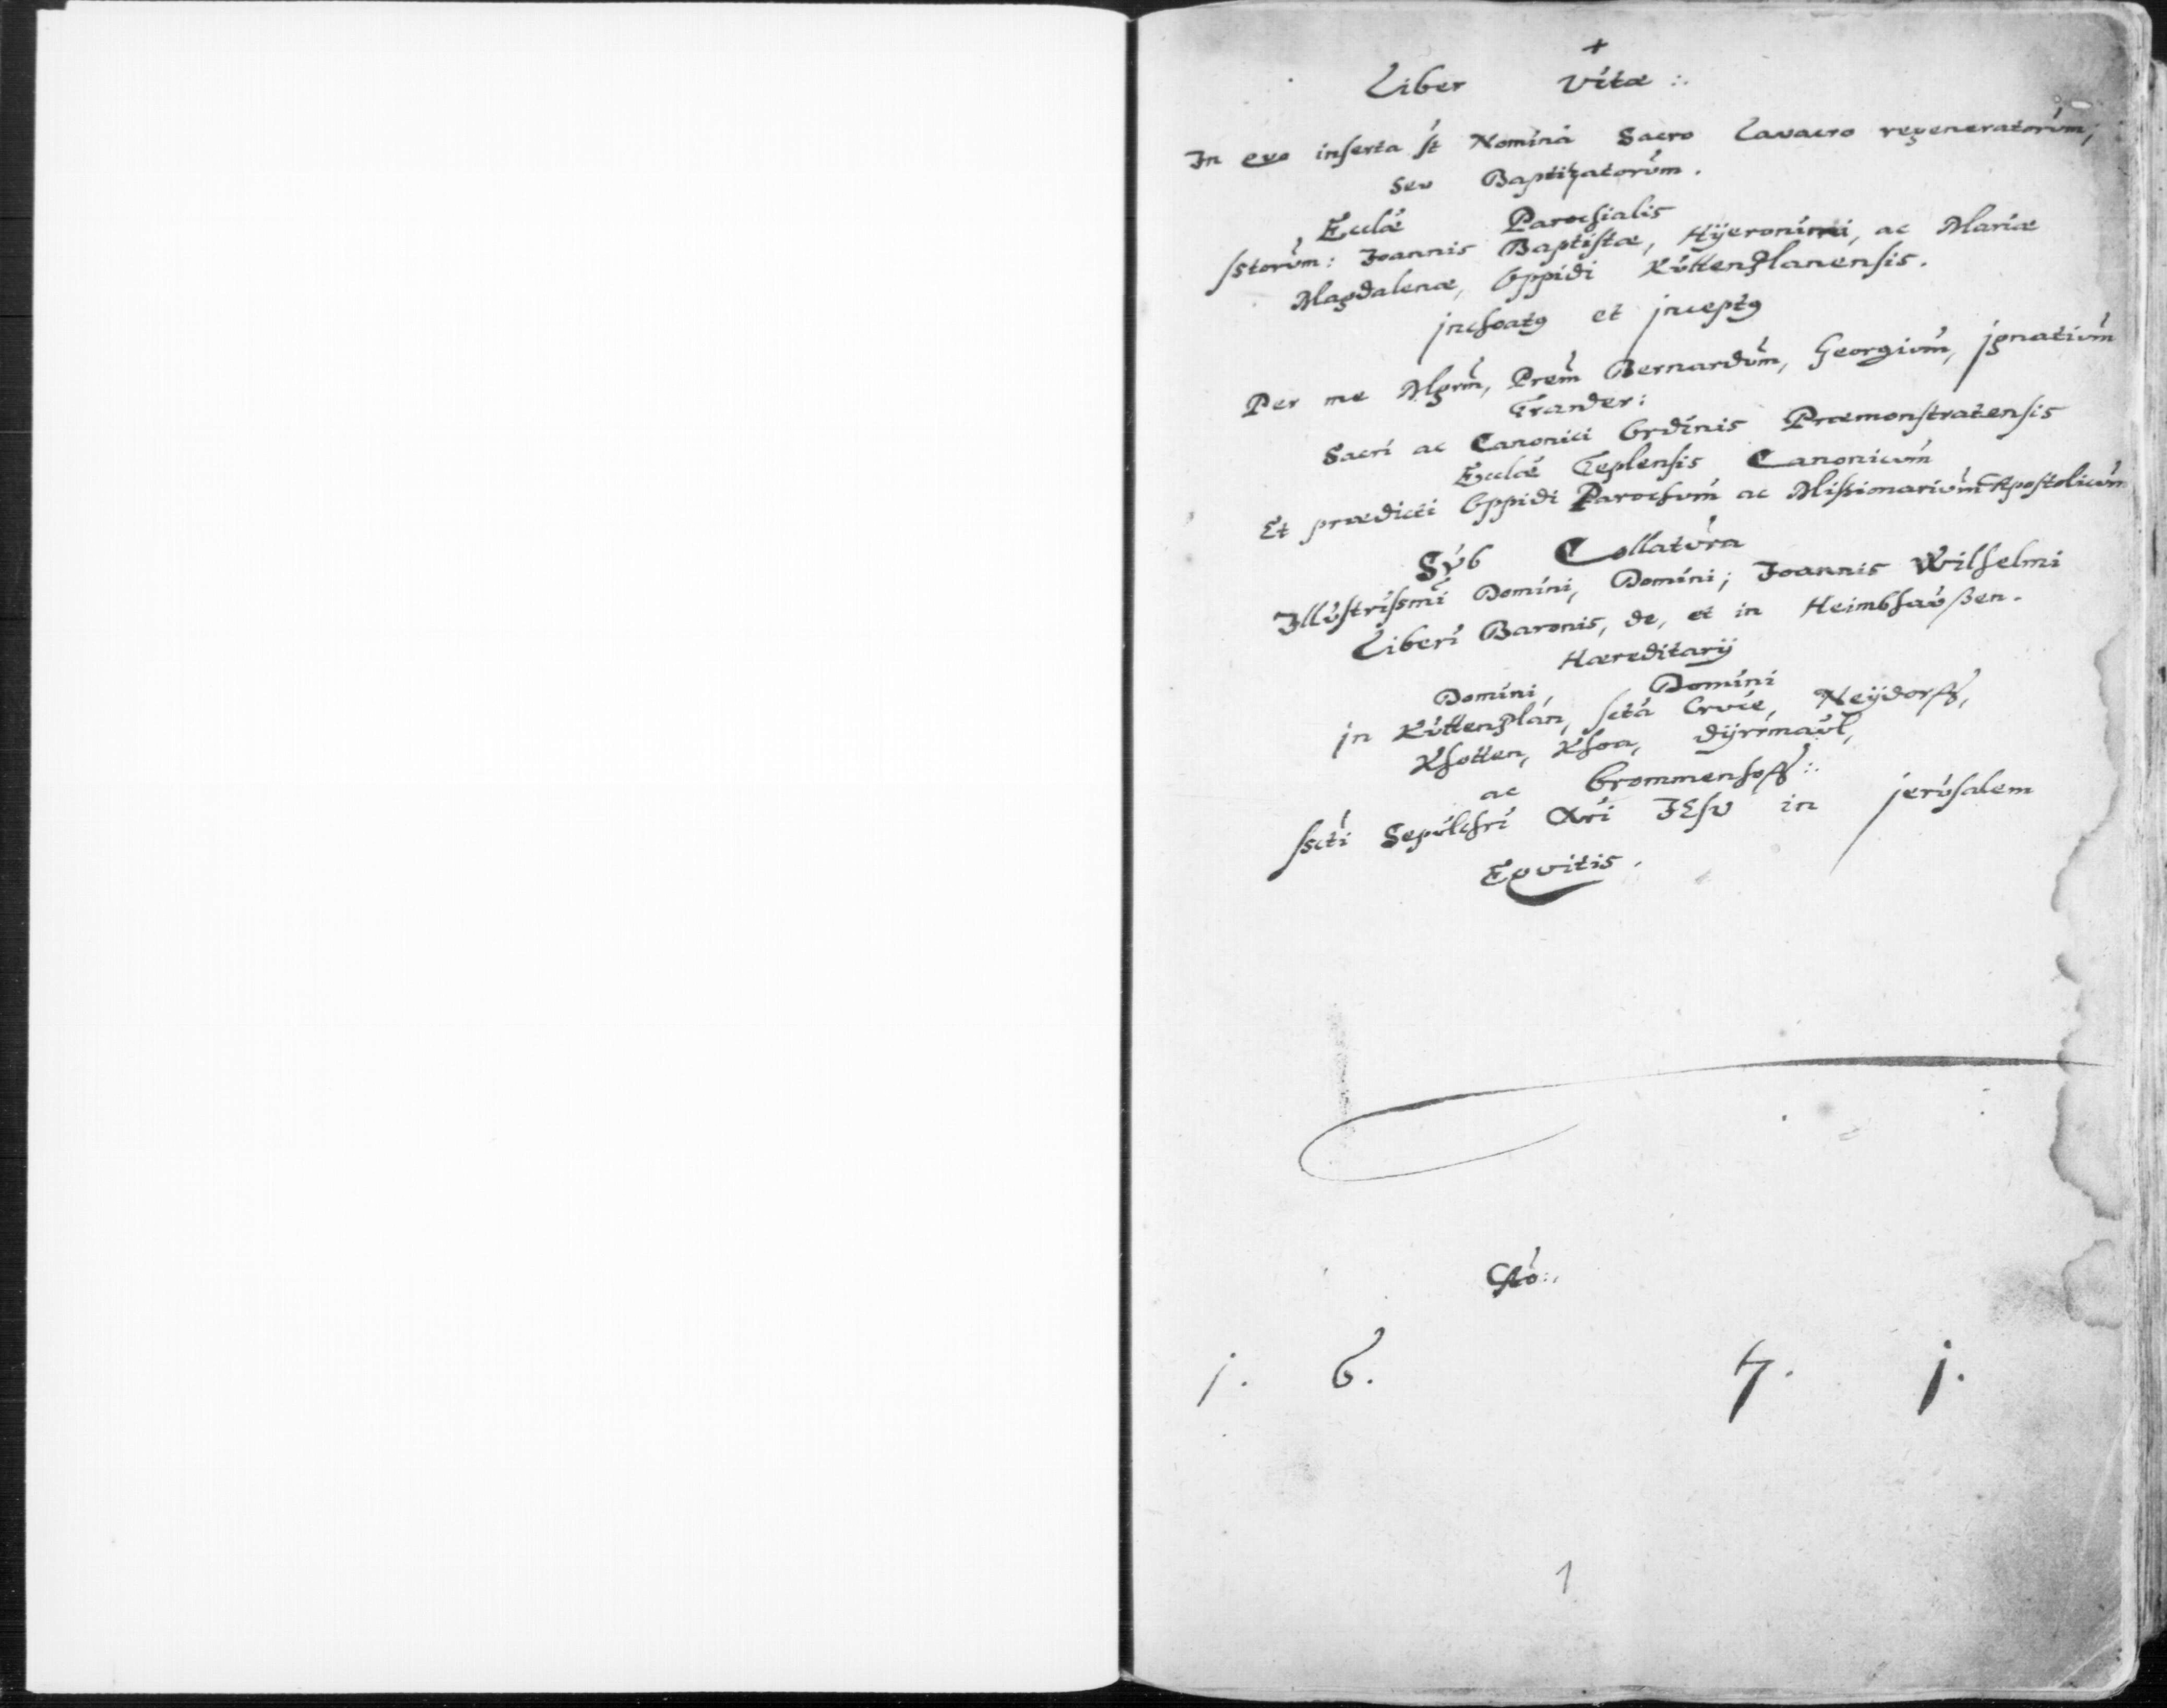 +
Liber Vitæ :.
In qvo inserta st Nomina Sacro Lavacro regeneratorum,
seu Baptizatorum.
Ecclæ Parochialis
Sstorum: Joannis Baptistæ, Hÿeronimi, ac Mariæ
Magdalenæ, Oppidi Kuttenplanensis.
jnchoatg et jnceptg
Per me Mgrm, Prem Bernardum, Georgium, jgnatium
Trander:
Sacri ac Canonici Ordinis Præmonstratensis
Ecclæ Teplensis Canonicum
Et prædicti Oppidi Parochum ac Missionarium Apostolicum
Sub Collatura
Illustrissmi Domini, Domini; Joannis Wilhelmi
Liberi Baronis, de, et in Heimbhaußen.
Hæreditarÿ
Domini, Domini
jn Kuttenplan, scta Cruce, Neÿdorff,
Khotten, Khoa, dÿrrmaul,
ac Brommenhoff:.
Sscti Sepulchri Xri JEsu in jerusalem
Eqvitis.
Ao:.
j. 6. 7. j.
1